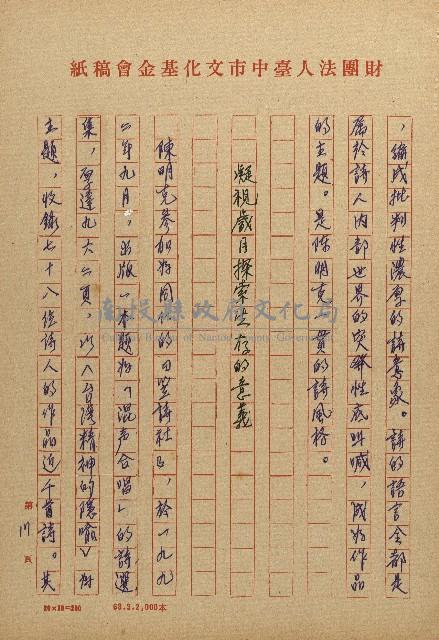 財團法人臺中市文化基金會稿紙
，編成批判性濃厚的詩意象。詩的語言全都是
屬於詩人內部世界的突發性底叫喊，成為作品
的主題。是陳明克一貫的詩風格。
凝視歲月探索生存的意義
陳明克參加為同仁的「笠詩社」，於一九九
二年九月，出版一本題為「混声合唱」的詩選
集，厚達九六二頁，以〈台湾精神的隱喻〉為
主題，收錄七十八位詩人的作品近千首詩。其
第 頁
20×10=200
68.3.2,000本
南投縣政府文化局
Cultural Affairs Bureau of Nantou County Government